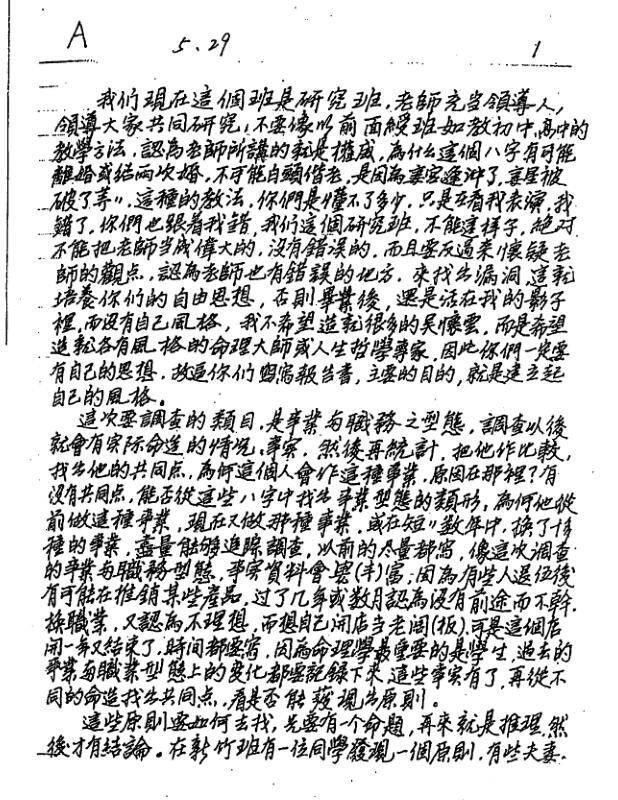 A
5.29
1
我们現在這個班是研究班，老師充当領導人，
領導大家共同研究，不要像以前面授班如教初中,高中的
教學方法，認為老師所講的就是權威，為什么這個八字有可能
離婚或結兩次婚，不可能白頭偕老，是因為妻宮逢沖了，妻星被
破了等"，這種的教法，你們是懂不了多少，只是在看我表演，我
錯了，你們也跟着我錯，我們這個研究班，不能這樣子，絕对
不能把老師当成偉大的，沒有錯误的，而且要反過來懷疑老
師的觀点，認為老師也有錯誤的地方，來找出漏洞，這就
培養你们的自由思想，否則畢業後，還是活在我的影子
裡，而沒有自己風格，我不希望造就很多的吳懷雲，而是希望
造就各有風格的命理大師或人生哲學專家，因此你們一定要
有自己的思想，故逼你们寫報告書，主要的目的，就是建立起
自己的風格。
這次要調查的類目，是事業与職務之型態，調查以後
就會有实际命造的情况，事实，然後再統計，把他作比較，
找出他的共同点，為何這個人會作這種事業，原因在那裡？有
沒有共同点，能否從這些八字中找出事業型態的類形，為何他從
前做這種事業，現在又做那種事業，或在短"數年中，換了十多
種的事業，盡量能够追踪調查，以前的尽量都寫，像這次調查
的事業与職務型態，事实資料會豐(丰)富；因為有些人退伍後
有可能在推銷某些產品，过了几年或数月認為沒有前途而不幹，
換職業，又認為不理想，而想自己開店当老闆(板)，可是這個店
開一年又結束了，時間都要寫，因為命理學最重要的是學生，過去的
事業与職業型態上的变化都要記錄下來，這些事实有了，再從不
同的命造找出共同点，看是否能發現出原則。
這些原則要如何去找，先要有一个命題，再來就是推理，然
後才有結論。在新竹班有一位同學發現一個原則，有些夫妻，